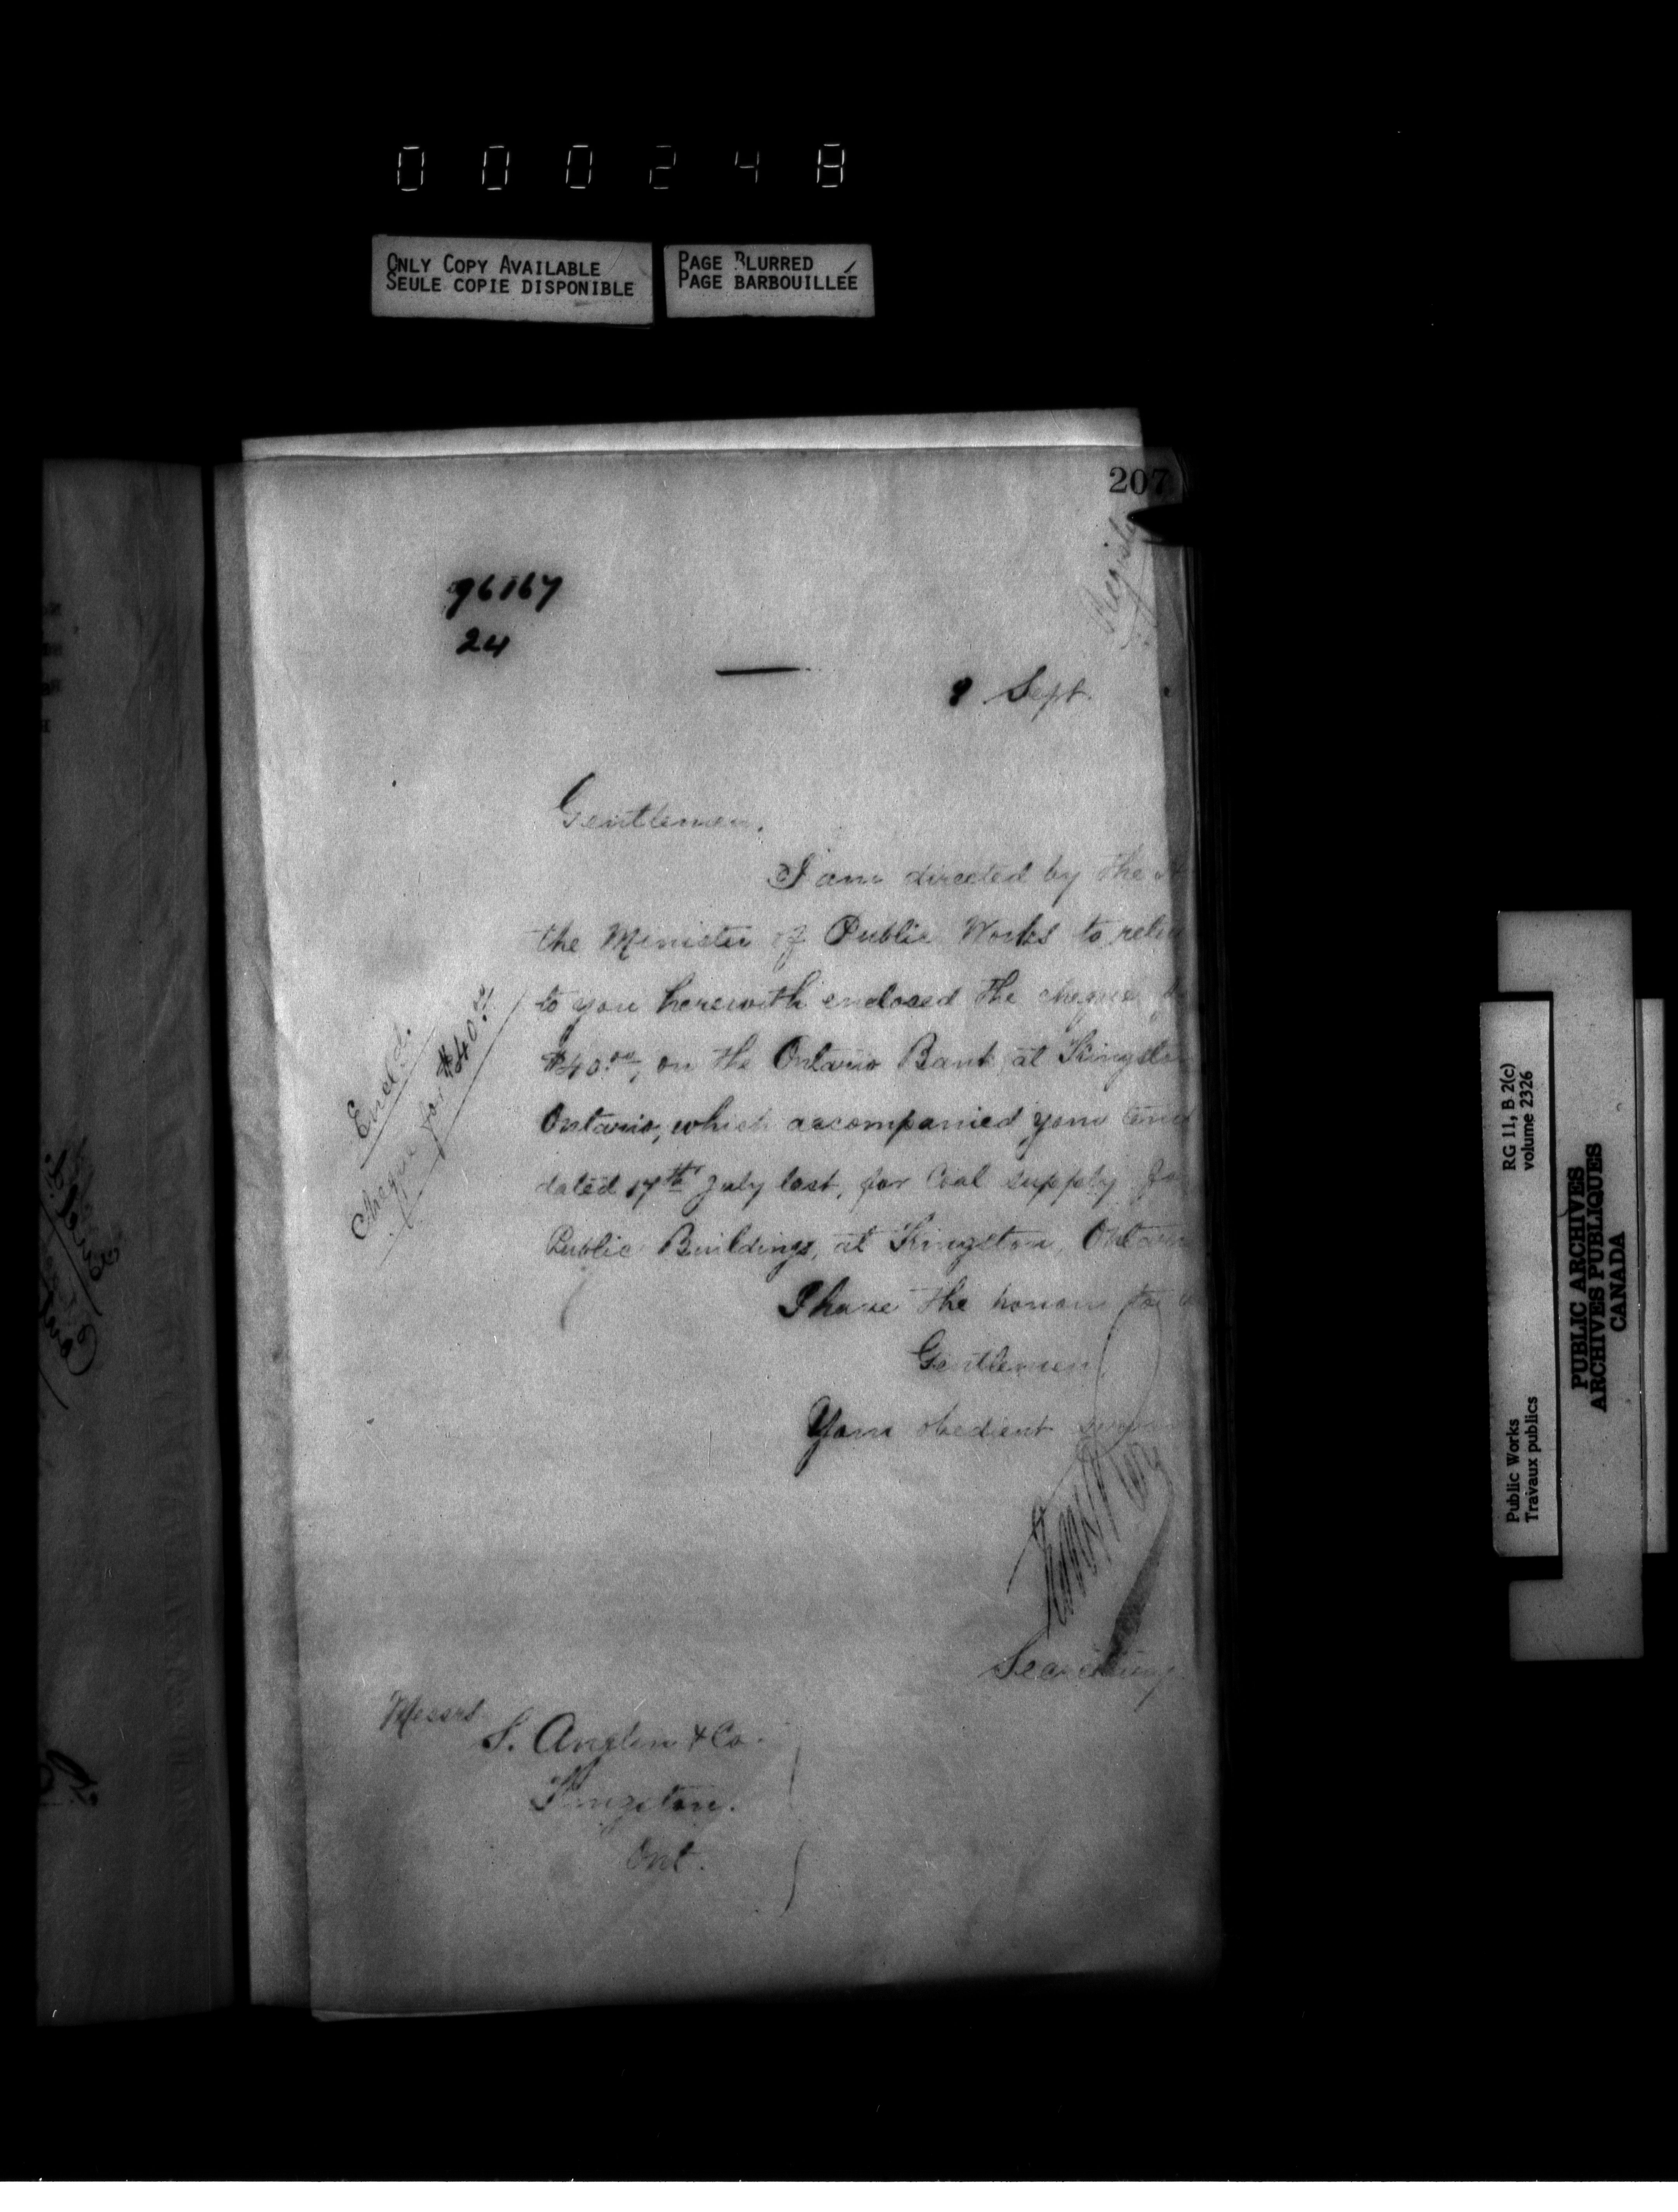 000248
ONLY COPY AVAILABLE
SEULE COPIE DISPONIBLE
PAGE BLURRED
PAGE BARBOUILLÉE
207
Registe
96167
24
9 Sept.
Gentlemen,
I am directed by the H
the Minister of Public Works to retu
to you herewith enclosed the cheque
$40.00, on the Ontario Bank at Kingston
Ontario, which accompanied your tend
dated 17th July last, for Coal supply fo
Public Buildings, at Kingston, Ontario
Encl:
Cheque for $40.00
I have the honour to
Gentlemen
Your obedient
Secretary
Messrs
S. Anglin & Co.
Kingston.
Ont.
RG 11, B 2(c)
volume 2326
Public Works
Travaux publics
PUBLIC ARCHIVES
ARCHIVES PUBLIQUES
CANADA